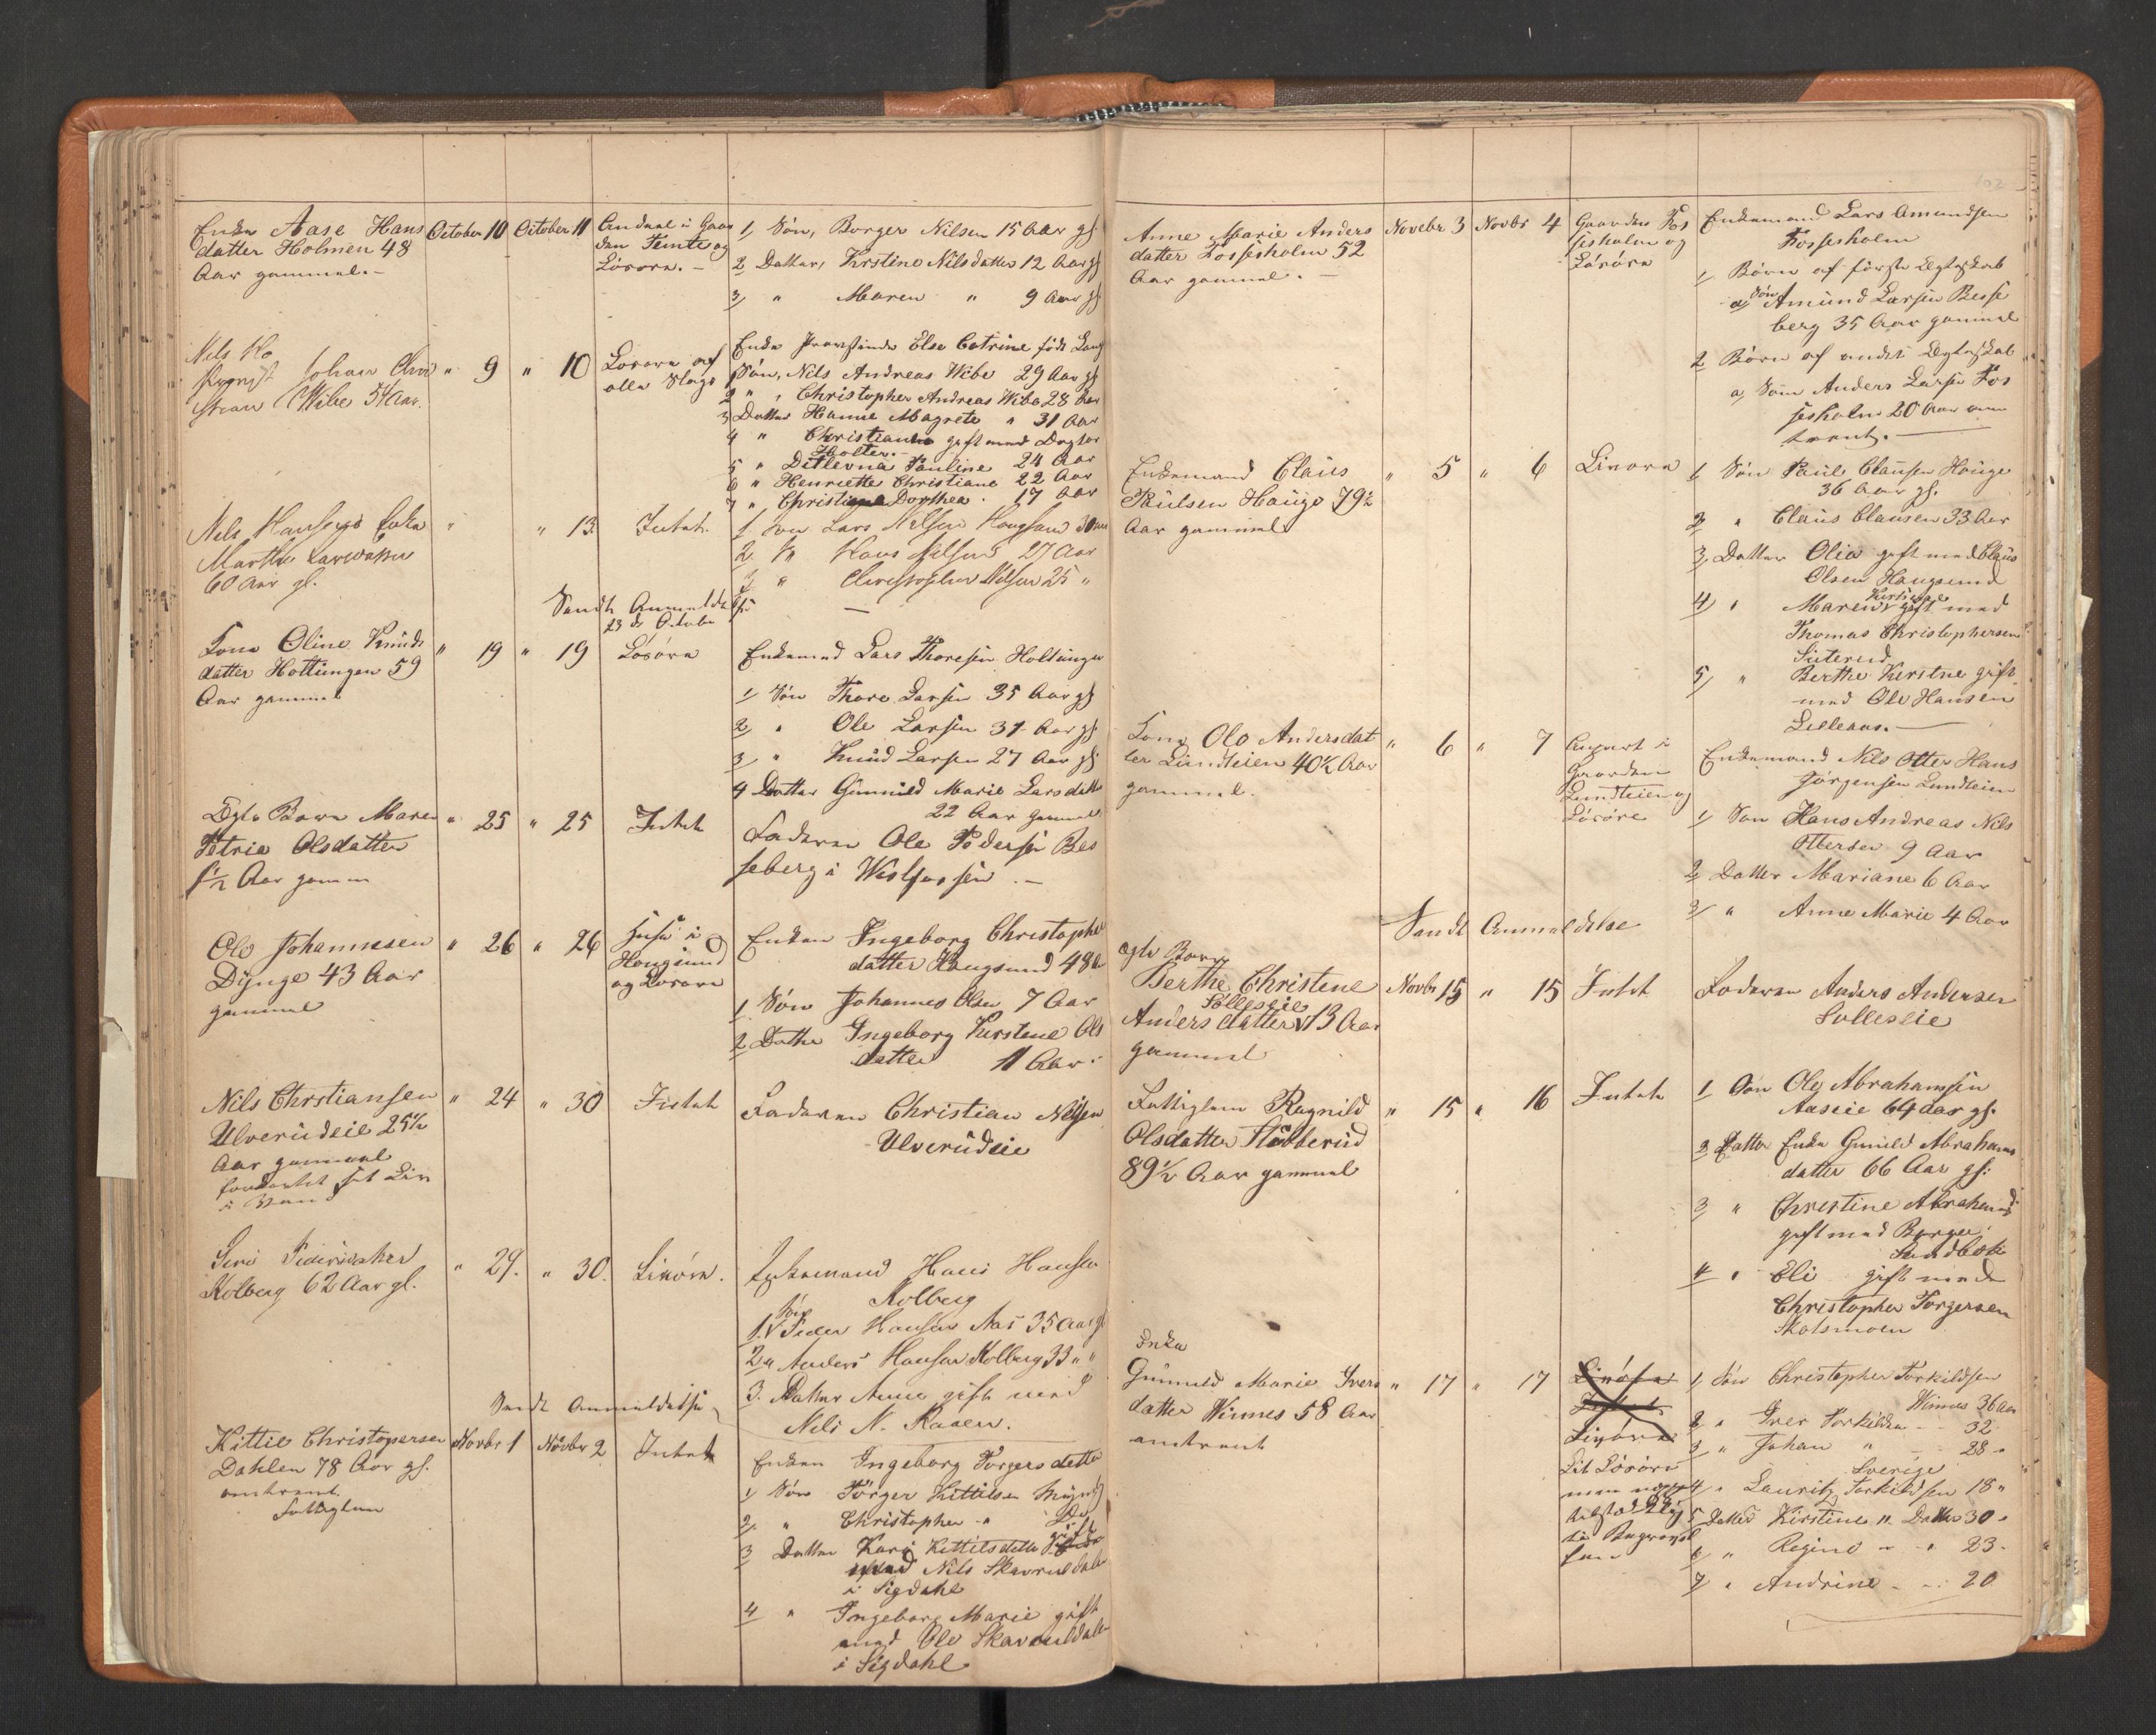 Enke Aase Hans
datter Holmen 48
Aar gammel. -
October 10
October 11
Andeel i Gaar
den Temte og
Lösöre. -
1, Søn, Borger Nilsen 15 Aar gl
2 Datter, Krstine Nilsdatter 12 Aar gl
3, " Maren " 9 Aar gl
Johan Chri
stian Wibe 54 Aar.
" 9
" 10
Lösöre af
alle Slags
Enke Provstinde Else Catrine föd Lang
1 Søn, Nils Andreas Wibe 29 Aar gl
2 " , Christopher Andreas Wibe 28 Aar
3 Datter Hanne Magrete " 31 Aar
4 " Christiane gift med Doctor
Holter. -
5 " Ditlevna Pauline 24 Aar
6 " Henriette Christiane 22 Aar
7 " Christiane Dorthea . 17 Aar
Nils Hansens Enke
Marthe Larsdatter
60 Aar gl.
"
" 13
Intet.
1. Søn Lars Nilsen Hougsund 30 Aar
2. " Hans Nilsen 27 Aar
3 " Christopher Nilsen 25 "
Sendt Anmeldelse
23 de October
Kone Oline Knuds
datter Hottingen 59
Aar gammel
" 19
" 19
Lösöre
Enkemand Lars Thoresen Holtunger
1, Søn Thore Larsen 35 Aar gl
2, " Ole Larsen 31 Aar gl
3, " Knud Larsen 27 Aar gl
4 Datter Gunnild Marie Larsdatter
22 Aar gammel
Egte Barn Maren
Petria Olsdatter
1/2 Aar gamm
" 25
" 25
Intet
Faderen Ole Pedersen Bes
seberg i Westfossen. -
Ole Johannesen
Dynge 43 Aar
gammel
" 26
" 26
Huse i
Hougsund
og Lösöre
Enken Ingeborg Christopher
datter Haugsund 48 Aar
1 Søn Johannes Olsen 7 Aar
2 Datter Ingeborg Kirstene Ols
datter 11 Aar.
Nils Chrstiansen
Ulverudeie 25 1/2
Aar gammel
forkortet sit Liv
i Vand
" 24
" 30
Intet
Faderen Christian Nilsen
Ulverudeie
Siri Pedersdatter
Kolberg 62 Aar gl.
" 29.
" 30.
Lösöre.
Enkemand Hans Hansen
Kolberg
Søn
1. Peder Hansen Aas 35 Aar gl
2 " Anders Hansen Kolberg 33 " "
3. Datter Anne gift med
Nils N. Raaen.
Sendt Anmeldelse
Kittil Christopersen
Dahlen 78 Aar gl.
omtrent
Fattiglem
Novbr 1
Novbr 2
Intet
Enken Ingeborg Torgersdatter
1, Søn Törger Kittilsen Myndig
2, " Christopher " Do
3 Datter Kari Kittilsdatter gift
med Nils Skavruddalen
i Sigdahl
4 " Ingeborg Marie gift
med Ole Skavruddalen
i Sigdahl
102
Anne Marie Anders
datter Fossesholm 52
Aar gammel. -
Novebr 3
Novbr 4
Gaarden Fos
sesholm og
Lösöre
Enkemand Lars Amundsen
Fossesholm
1, Børn af første Egteskab
a, Søn Amund Larsen Besse
berg 35 Aar gammel
2 Børn af andet Egteskab
a, Søn Anders Larsen Fos
sesholm 20 Aar om
trent. -
Enkemand Claus
Paulsen Hauge 79 1/2
Aar gammel
" 5
" 6
Lösöre
1, Søn Paul Clausen Hauge
36 Aar gl.
2, " Claus Clausen 33 Aar
3, Datter Olia gift med Claus
Olsen Haugsund
4, " Maren Kirstine gift med
Thomas Christophersen
Suterud
5, " Berthe Kirstne gift
med Ole Hansen
Lilleaas. -
Kone Olo Andersdat
ter Lundteien 40 1/2 Aar
gammel.
" 6
" 7
Anpart i
Gaarden
Lundteien og
Lösöre
Enkemand Nils Otter Hans
Jörgensen Lundteien
1, Søn Hans Andreas Nils
Ottersen 9 Aar
2, Datter Mariane 6 Aar
3, " Anne Marie 4 Aar
Sendt Anmeldelse
egte Barn
Berthe Christene
Sølleseie
Andersdatter 13 Aar
gammel
Novbr 15
" 15
Intet
Faderen Anders Andersen
Solleseie
Fattiglem Ragnild
Olsdatter Stubberud
89 1/2 Aar gammel
" 15
" 16
Intet
1 Søn Ole Abrahamsen
Aaseie 64 Aar gl.
2 Datter Enke Gunild Abrahams
datter 66 Aar gl:
3 " Chrestine Abrahamsd
gift med Borger
Sandbek
4 " Eli gift med
Christopher Torgersen
Skotsmoen
Enke
Gunnild Marie Ivers
datter Winnes 58 Aar
omtrent
" 17
" 17
Lidt Lösöre
1, Søn Christopher Torkildsen
Winnes 36 Aar
2, " Iver Torkildsen - - 32
3, " Johan " - - 28 "
Sverige
4, " Lauritz Torkildsen 18 "
5 Datter Kirstine " Datter 30 "
6, " Regine " - " 23 -
7, " Andrine - - " 20